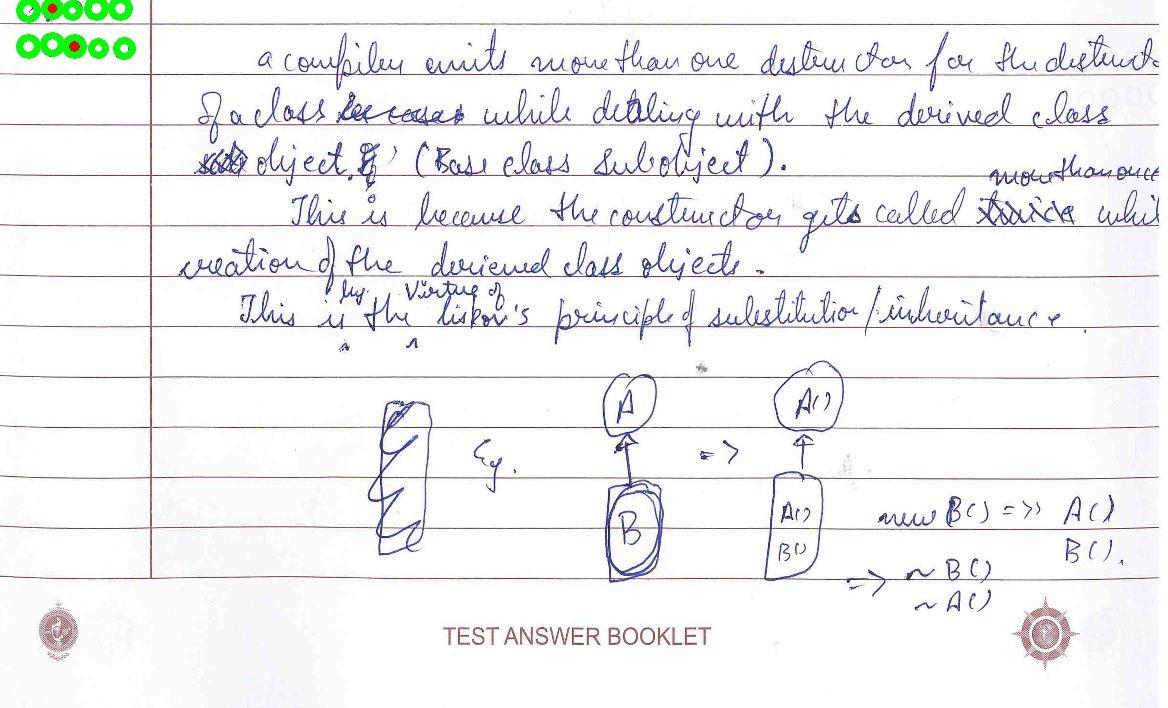 a compiler emits more than one destructor for the destruct
of a class while dealing with the derived class
object, (Base class subobject).
more than once
This is because the constructor gets called whil
creation of the derieved class objects.
by Virtue of
This is the liskov's principle of substitution/inheritance.
Eg. A => A()
B A() B()
new B() =>> A()
B().
=> ~B()
~A()
TEST ANSWER BOOKLET